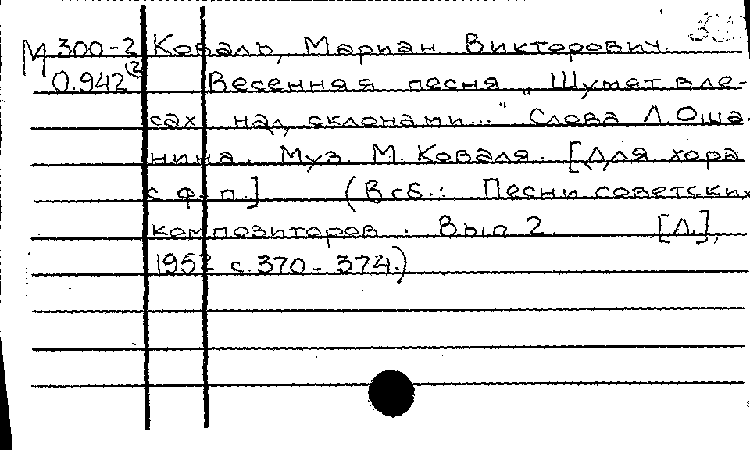 М 300-2 Коваль, Мариан Викторович.
0.942(2) Весенняя песня „Шумят в ле-
сах над склонами..." Слова Л. Оша-
нина. Муз. М. Коваля. [Для хора
с ф.-п.] (В сб.: Песни советских
композиторов. Вып 2. [Л.],
1952 с. 370-374.)